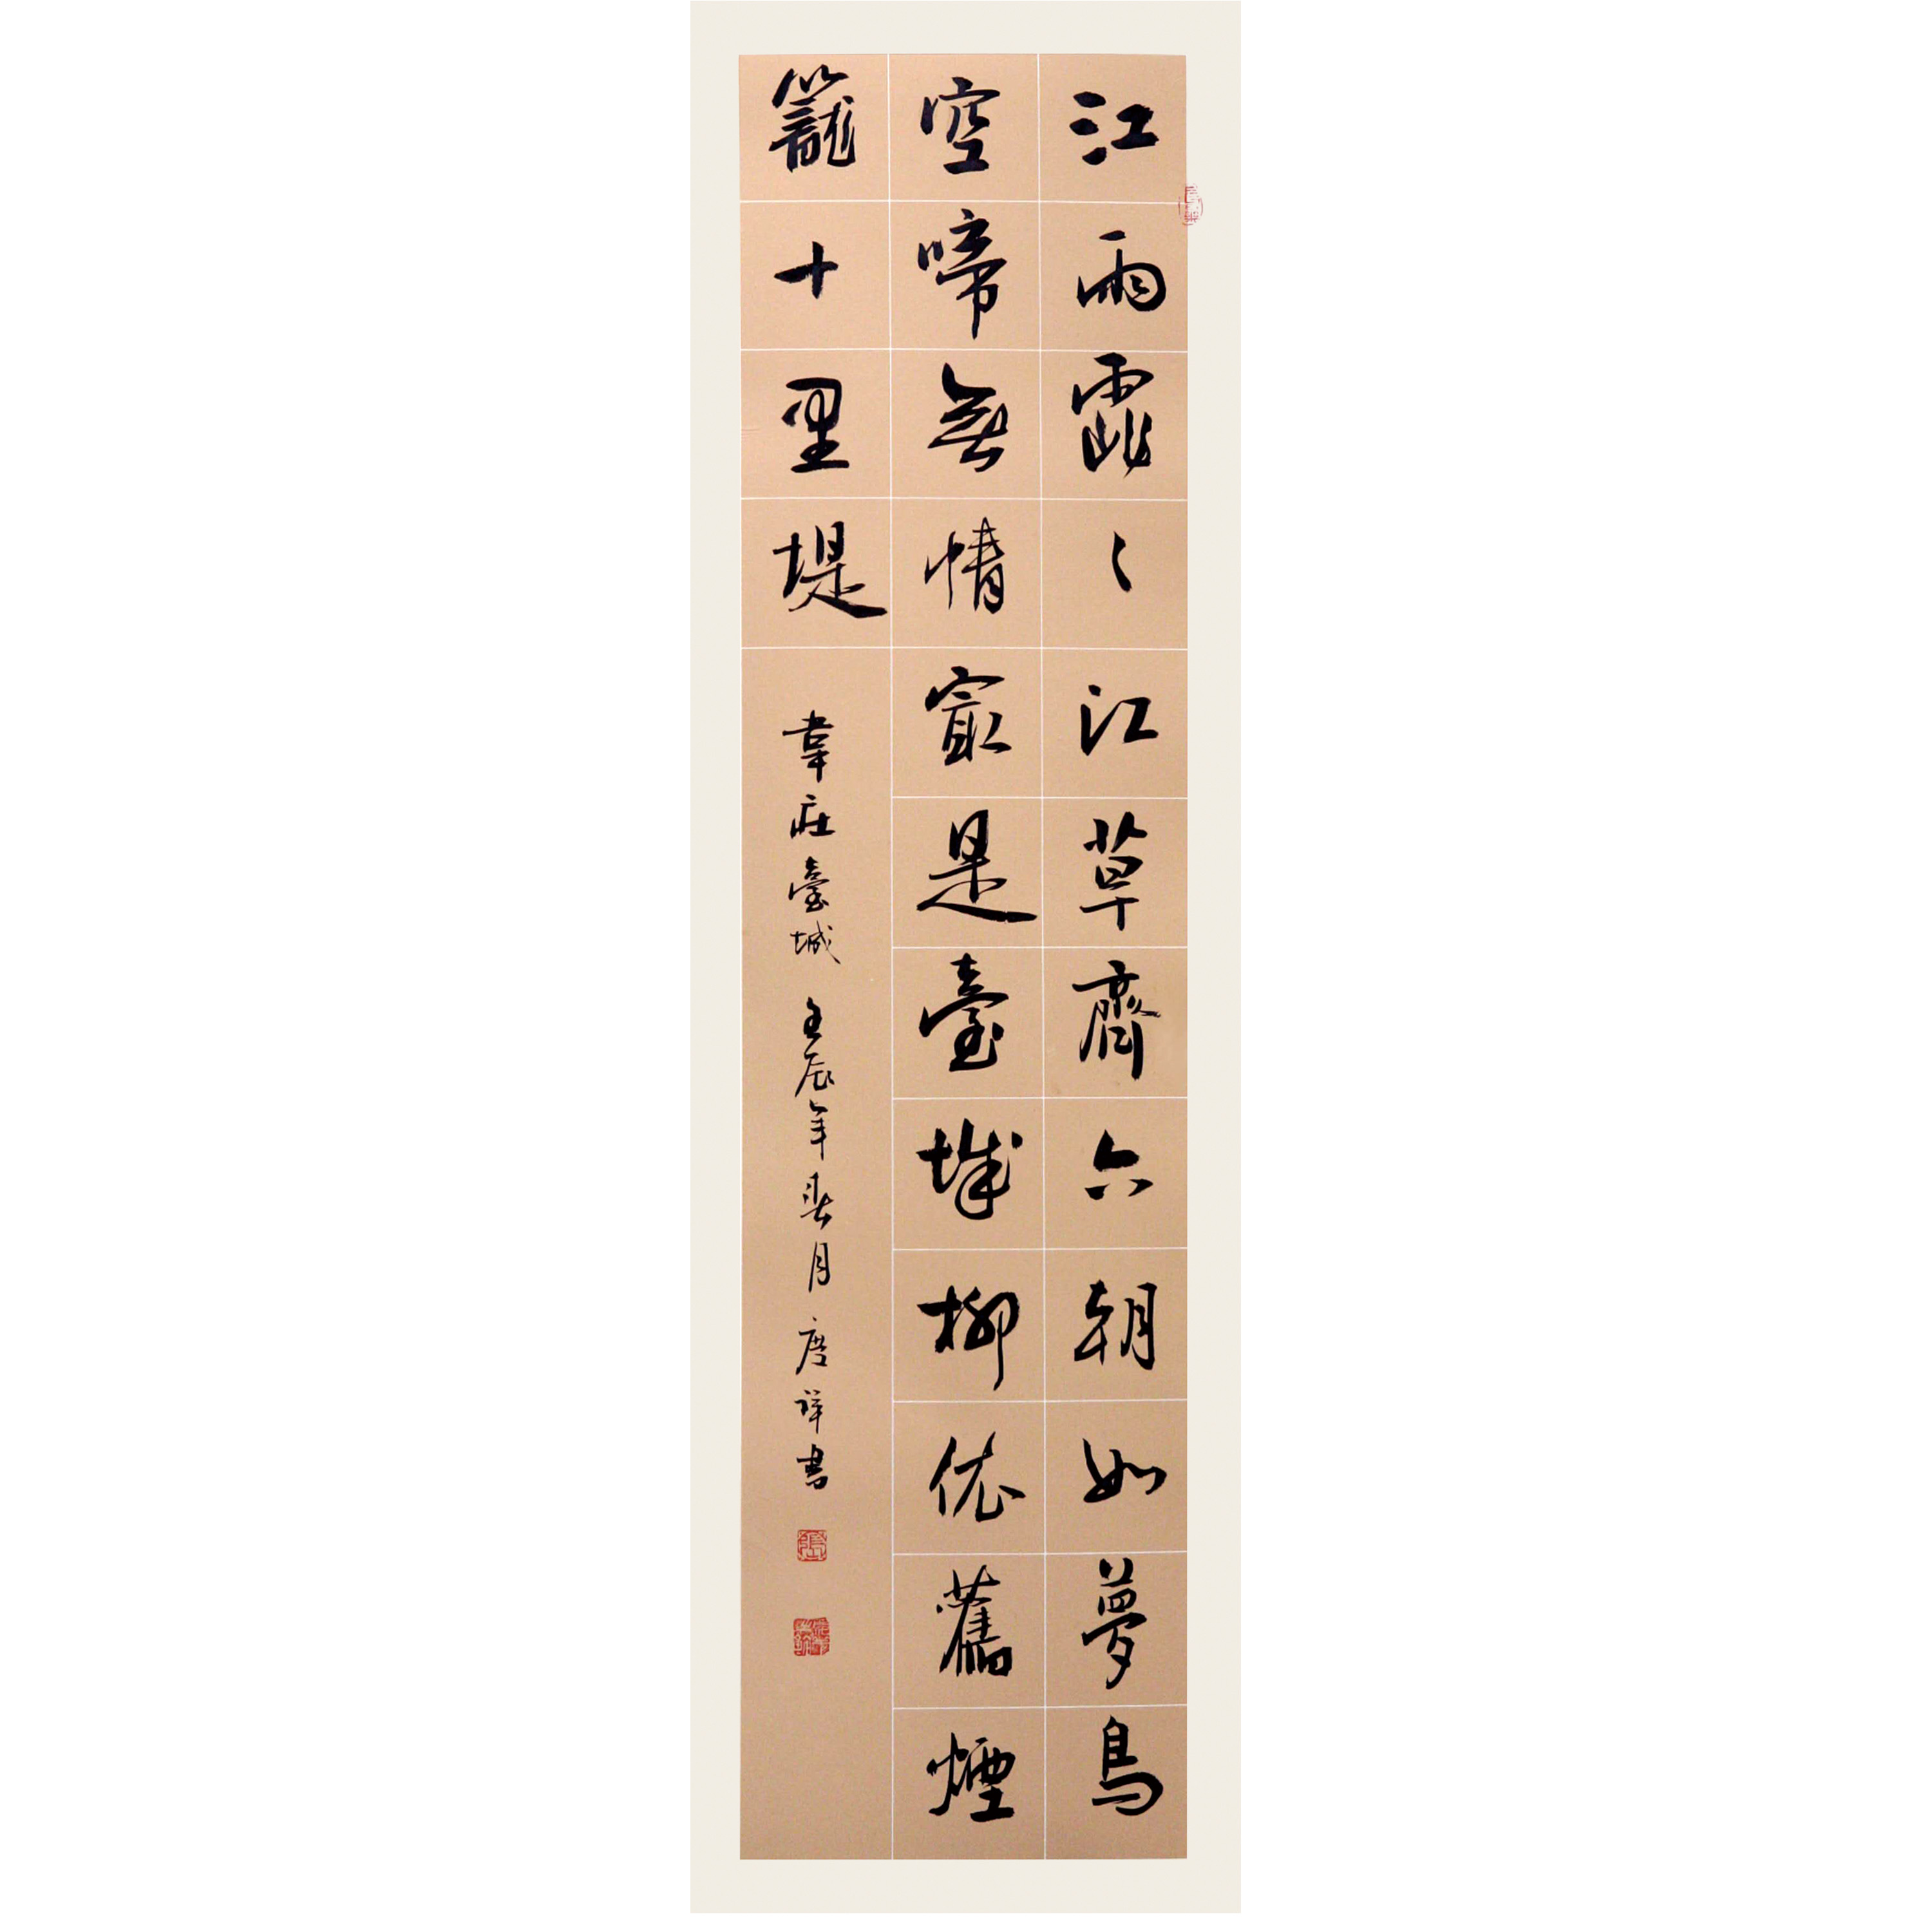 江雨霏〻江草齊六朝如夢鳥
空啼無情寂是臺城柳依舊煙
籠十里堤
韋莊臺城 壬辰年春月 唐祥書